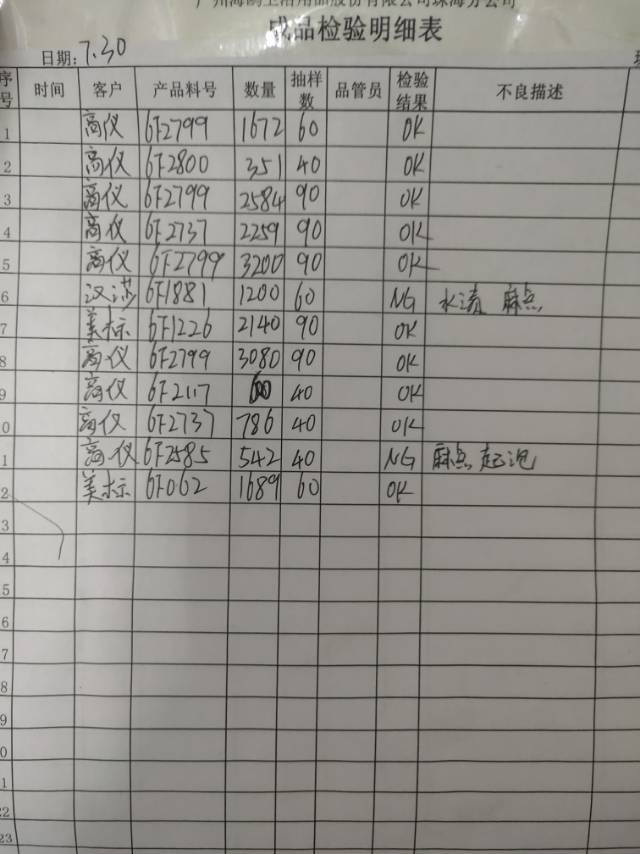 广州海鸥卫浴用品股份有限公司珠海分公司
成品检验明细表
日期: 7.30
序号 时间 客户 产品料号 数量 抽样数 品管员 检验结果 不良描述
1 高仪 6F2799 1672 60 OK
2 高仪 6F2800 351 40 OK
3 高仪 6F2799 2584 90 OK
4 高仪 6F2737 2259 90 OK
5 高仪 6F2799 3200 90 OK
6 汉莎 6F1881 1200 60 NG 水渍 麻点
7 美标 6F1226 2140 90 OK
8 高仪 6F2799 3080 90 OK
9 高仪 6F2117 40 OK
0 高仪 6F2737 786 40 OK
1 高仪 6F2585 542 40 NG 麻点 起泡
2 美标 6F062 1689 60 OK
3
4
5
6
7
8
9
0
1
22
23